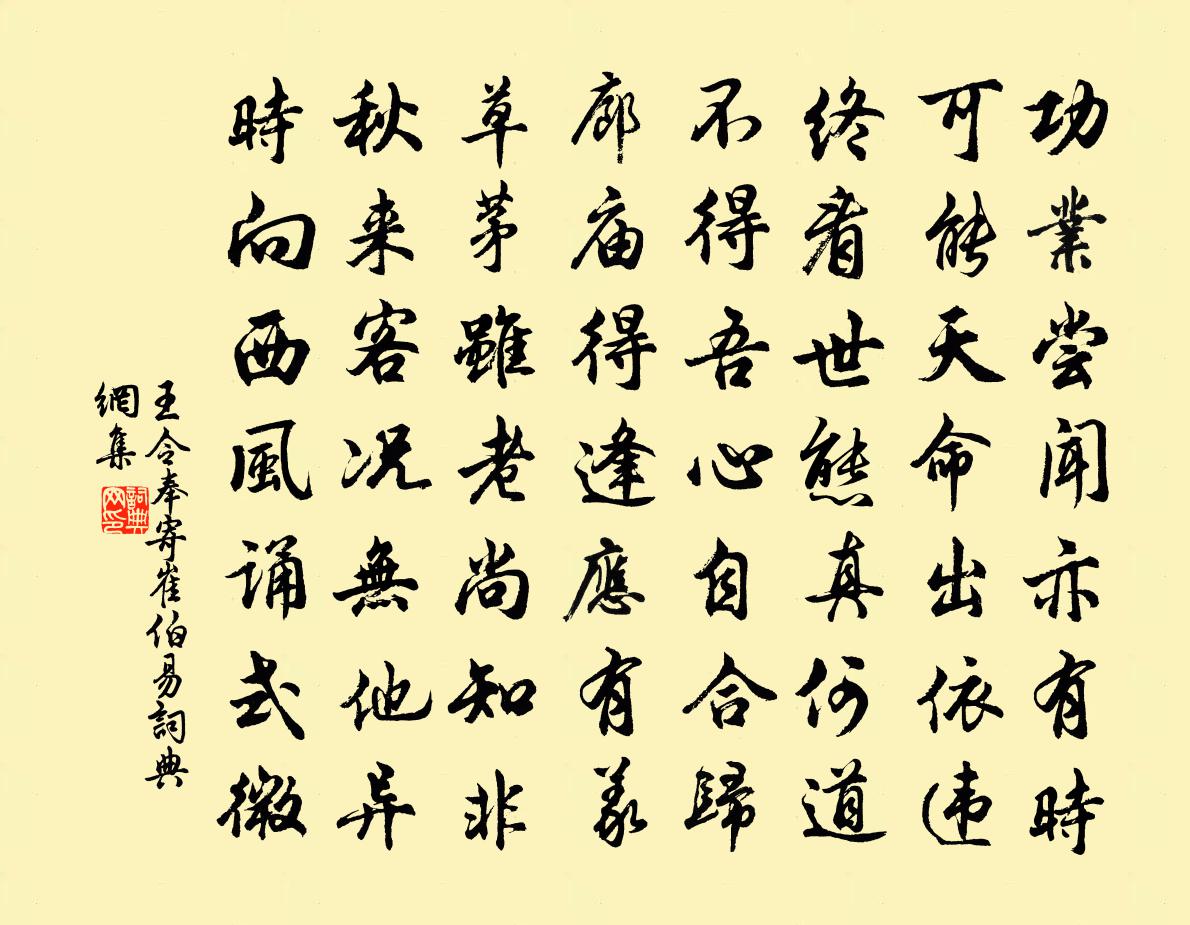 功業尝闻亦有時
可能天命出依违
终看世態真何道
不得吾心自合歸
廊庙得逢應有義
草茅雖老尚知非
秋来客况無他异
時向西風诵式微
王令奉寄崔伯易詞典
網集
詞典
网印